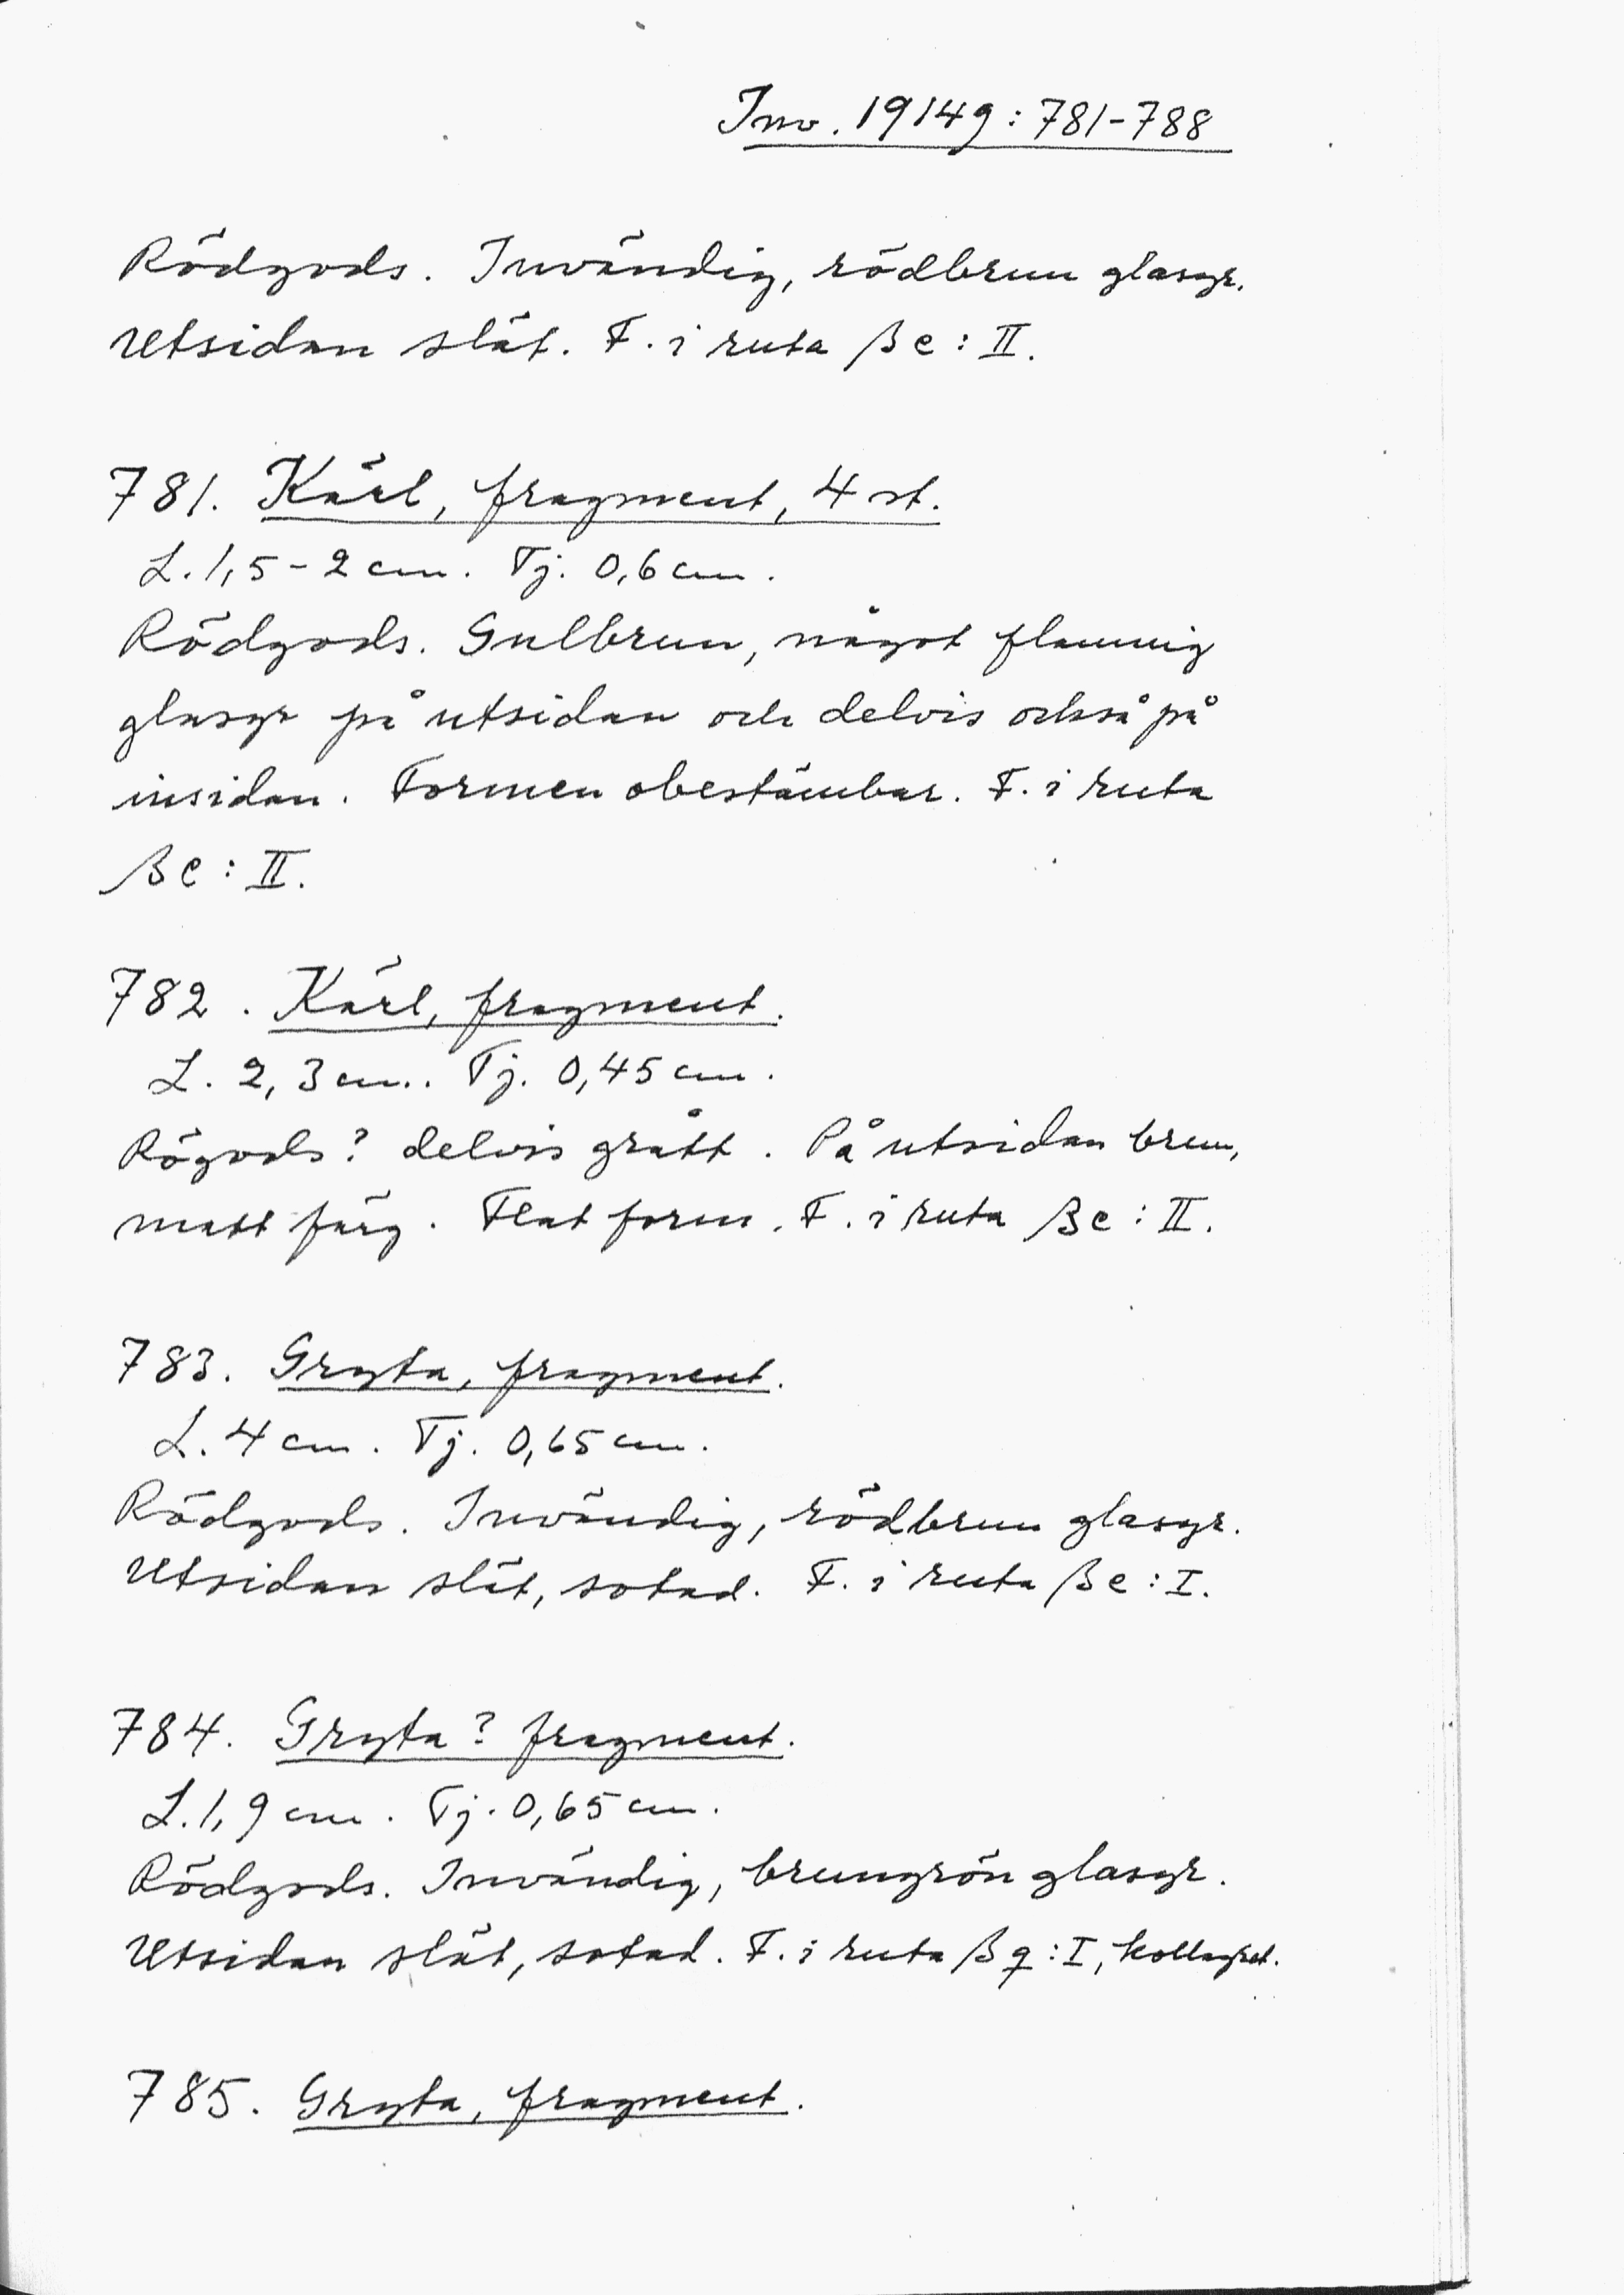 Inv. 19149:781-788
Rödgods. Invändig, rödbrun glasyr.
Utsidan slät. F. i ruta βe:II.
781. Kärl, fragment, 4 st.
L. 1,5-2 cm. Tj. 0,6 cm.
Rödgods. Gulbrun, något flammig
glasyr på utsidan och delvis också på
insidan. Formen obestämbar. F. i ruta
βe:II.
782. Kärl, fragment.
L. 2,3 cm. Tj. 0,45 cm.
Rögods? delvis grått. På utsidan brun,
matt färg. Flat form. F. i ruta βe:II.
783. Gryta, fragment.
L. 4 cm. Tj. 0,65 cm.
Rödgods. Invändig, rödbrun glasyr.
Utsidan slät, sotad. F. i ruta βe:I.
784. Gryta? fragment.
L. 1,9 cm. Tj. 0,65 cm.
Rödgods. Invändig, brungrön glasyr.
Utsidan slät, sotad. F. i ruta βq:I,
785. Gryta, fragment.